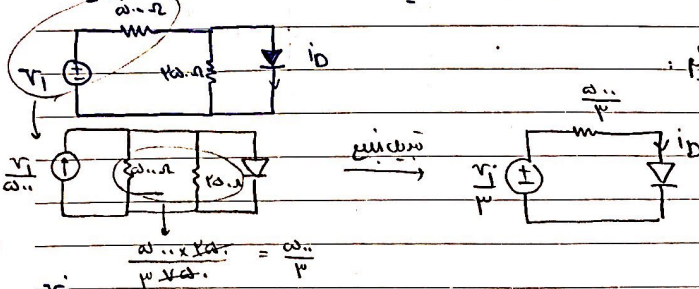 ۵۰۰ Ω
Vi
۲۵۰ Ω
iD
Vi/۵۰۰
۵۰۰ Ω
۲۵۰ Ω
تبدیل منبع
Vi/۳
۵۰۰/۳
iD
۵۰۰ × ۲۵۰ / ۳ ۷۵۰ = ۵۰۰/۳